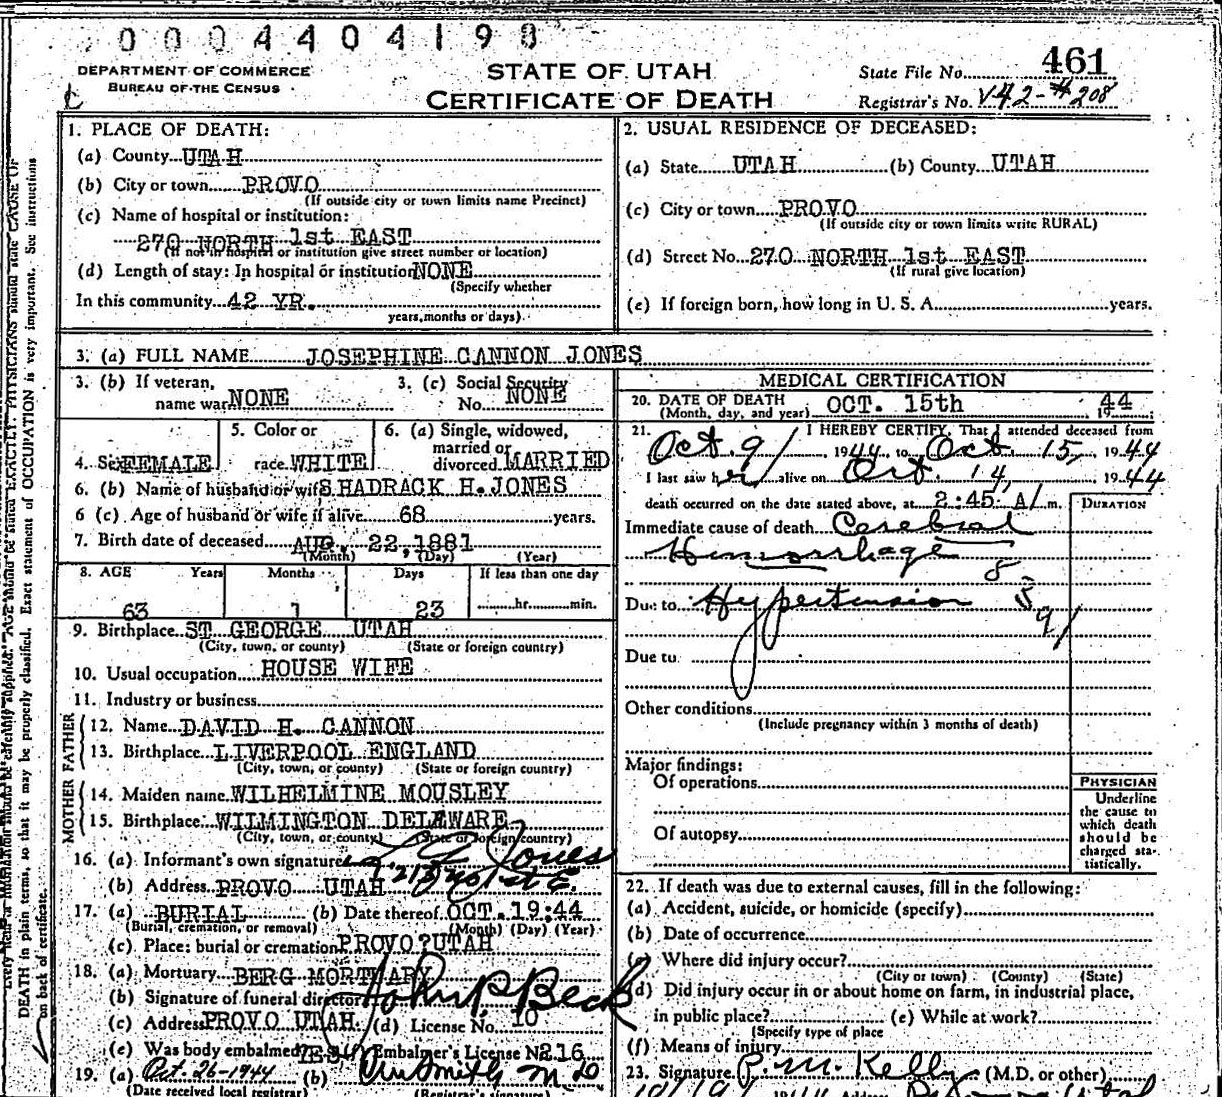 000440419
DEPARTMENT OF COMMERCE
BUREAU OF THE CENSUS
STATE OF UTAH
CERTIFICATE OF DEATH
State File No. 461
Registrar's No. V42-#208
1. PLACE OF DEATH:
(a) County UTAH
(b) City or town PROVO
(If outside city or town limits name Precinct)
(c) Name of hospital or institution:
270 NORTH 1st EAST
(If not in hospital or institution give street number or location)
(d) Length of stay: In hospital or institution NONE
(Specify whether
In this community 42 YR.
years, months or days)
2. USUAL RESIDENCE OF DECEASED:
(a) State UTAH (b) County UTAH
(c) City or town PROVO
(If outside city or town limits write RURAL)
(d) Street No. 270 NORTH 1st EAST
(If rural give location)
(e) If foreign born, how long in U. S. A. years.
3. (a) FULL NAME JOSEPHINE CANNON JONES
3. (b) If veteran,
name war NONE
3. (c) Social Security
No. NONE
4. Sex FEMALE
5. Color or
race WHITE
6. (a) Single, widowed,
married or
divorced MARRIED
6. (b) Name of husband or wife SHADRACK H. JONES
6 (c) Age of husband or wife if alive 68 years.
7. Birth date of deceased AUG. 22, 1881
(Month) (Day) (Year)
8. AGE Years Months Days If less than one day
63 1 23 hr. min.
9. Birthplace ST GEORGE UTAH
(City, town, or county) (State or foreign country)
10. Usual occupation HOUSE WIFE
11. Industry or business
FATHER
12. Name DAVID H. CANNON
13. Birthplace LIVERPOOL ENGLAND
(City, town, or county) (State or foreign country)
MOTHER
14. Maiden name WILHELMINE MOUSLEY
15. Birthplace WILMINGTON DELEWARE
(City, town, or county) (State or foreign country)
16. (a) Informant's own signature Jones
(b) Address PROVO UTAH
17. (a) BURIAL (b) Date thereof OCT. 19:44
(Burial, cremation, or removal) (Month) (Day) (Year)
(c) Place: burial or cremation PROVO?UTAH
18. (a) Mortuary BERG MORTUARY
(b) Signature of funeral director John P. Beck
(c) Address PROVO UTAH. (d) License No. 10
(e) Was body embalmed? YES (f) Embalmer's License No. 216
19. (a) Oct. 26-1944 (b) Smith M D
(Date received local registrar) (Registrar's signature)
MEDICAL CERTIFICATION
20. DATE OF DEATH
(Month, day, and year) OCT. 15th 1944
21. I HEREBY CERTIFY, That I attended deceased from
Oct. 9, 1944, to Oct. 15, 1944
I last saw her alive on Oct. 14, 1944
death occurred on the date stated above, at 2:45 A/m.
DURATION
Immediate cause of death Cerebral
Hemorrhage
Due to Hypertension
Due to
Other conditions
(Include pregnancy within 3 months of death)
Major findings:
Of operations
Of autopsy
PHYSICIAN
Underline
the cause to
which death
should be
charged sta-
tistically.
22. If death was due to external causes, fill in the following:
(a) Accident, suicide, or homicide (specify)
(b) Date of occurrence
(c) Where did injury occur?
(City or town) (County) (State)
(d) Did injury occur in or about home on farm, in industrial place,
in public place? (e) While at work?
(Specify type of place
(f) Means of injury
23. Signature P. M. Kelly (M.D. or other)
AGE should be stated EXACTLY. PHYSICIANS should state CAUSE OF
DEATH in plain terms, so that it may be properly classified. Exact statement of OCCUPATION is very important. See instructions
on back of certificate.